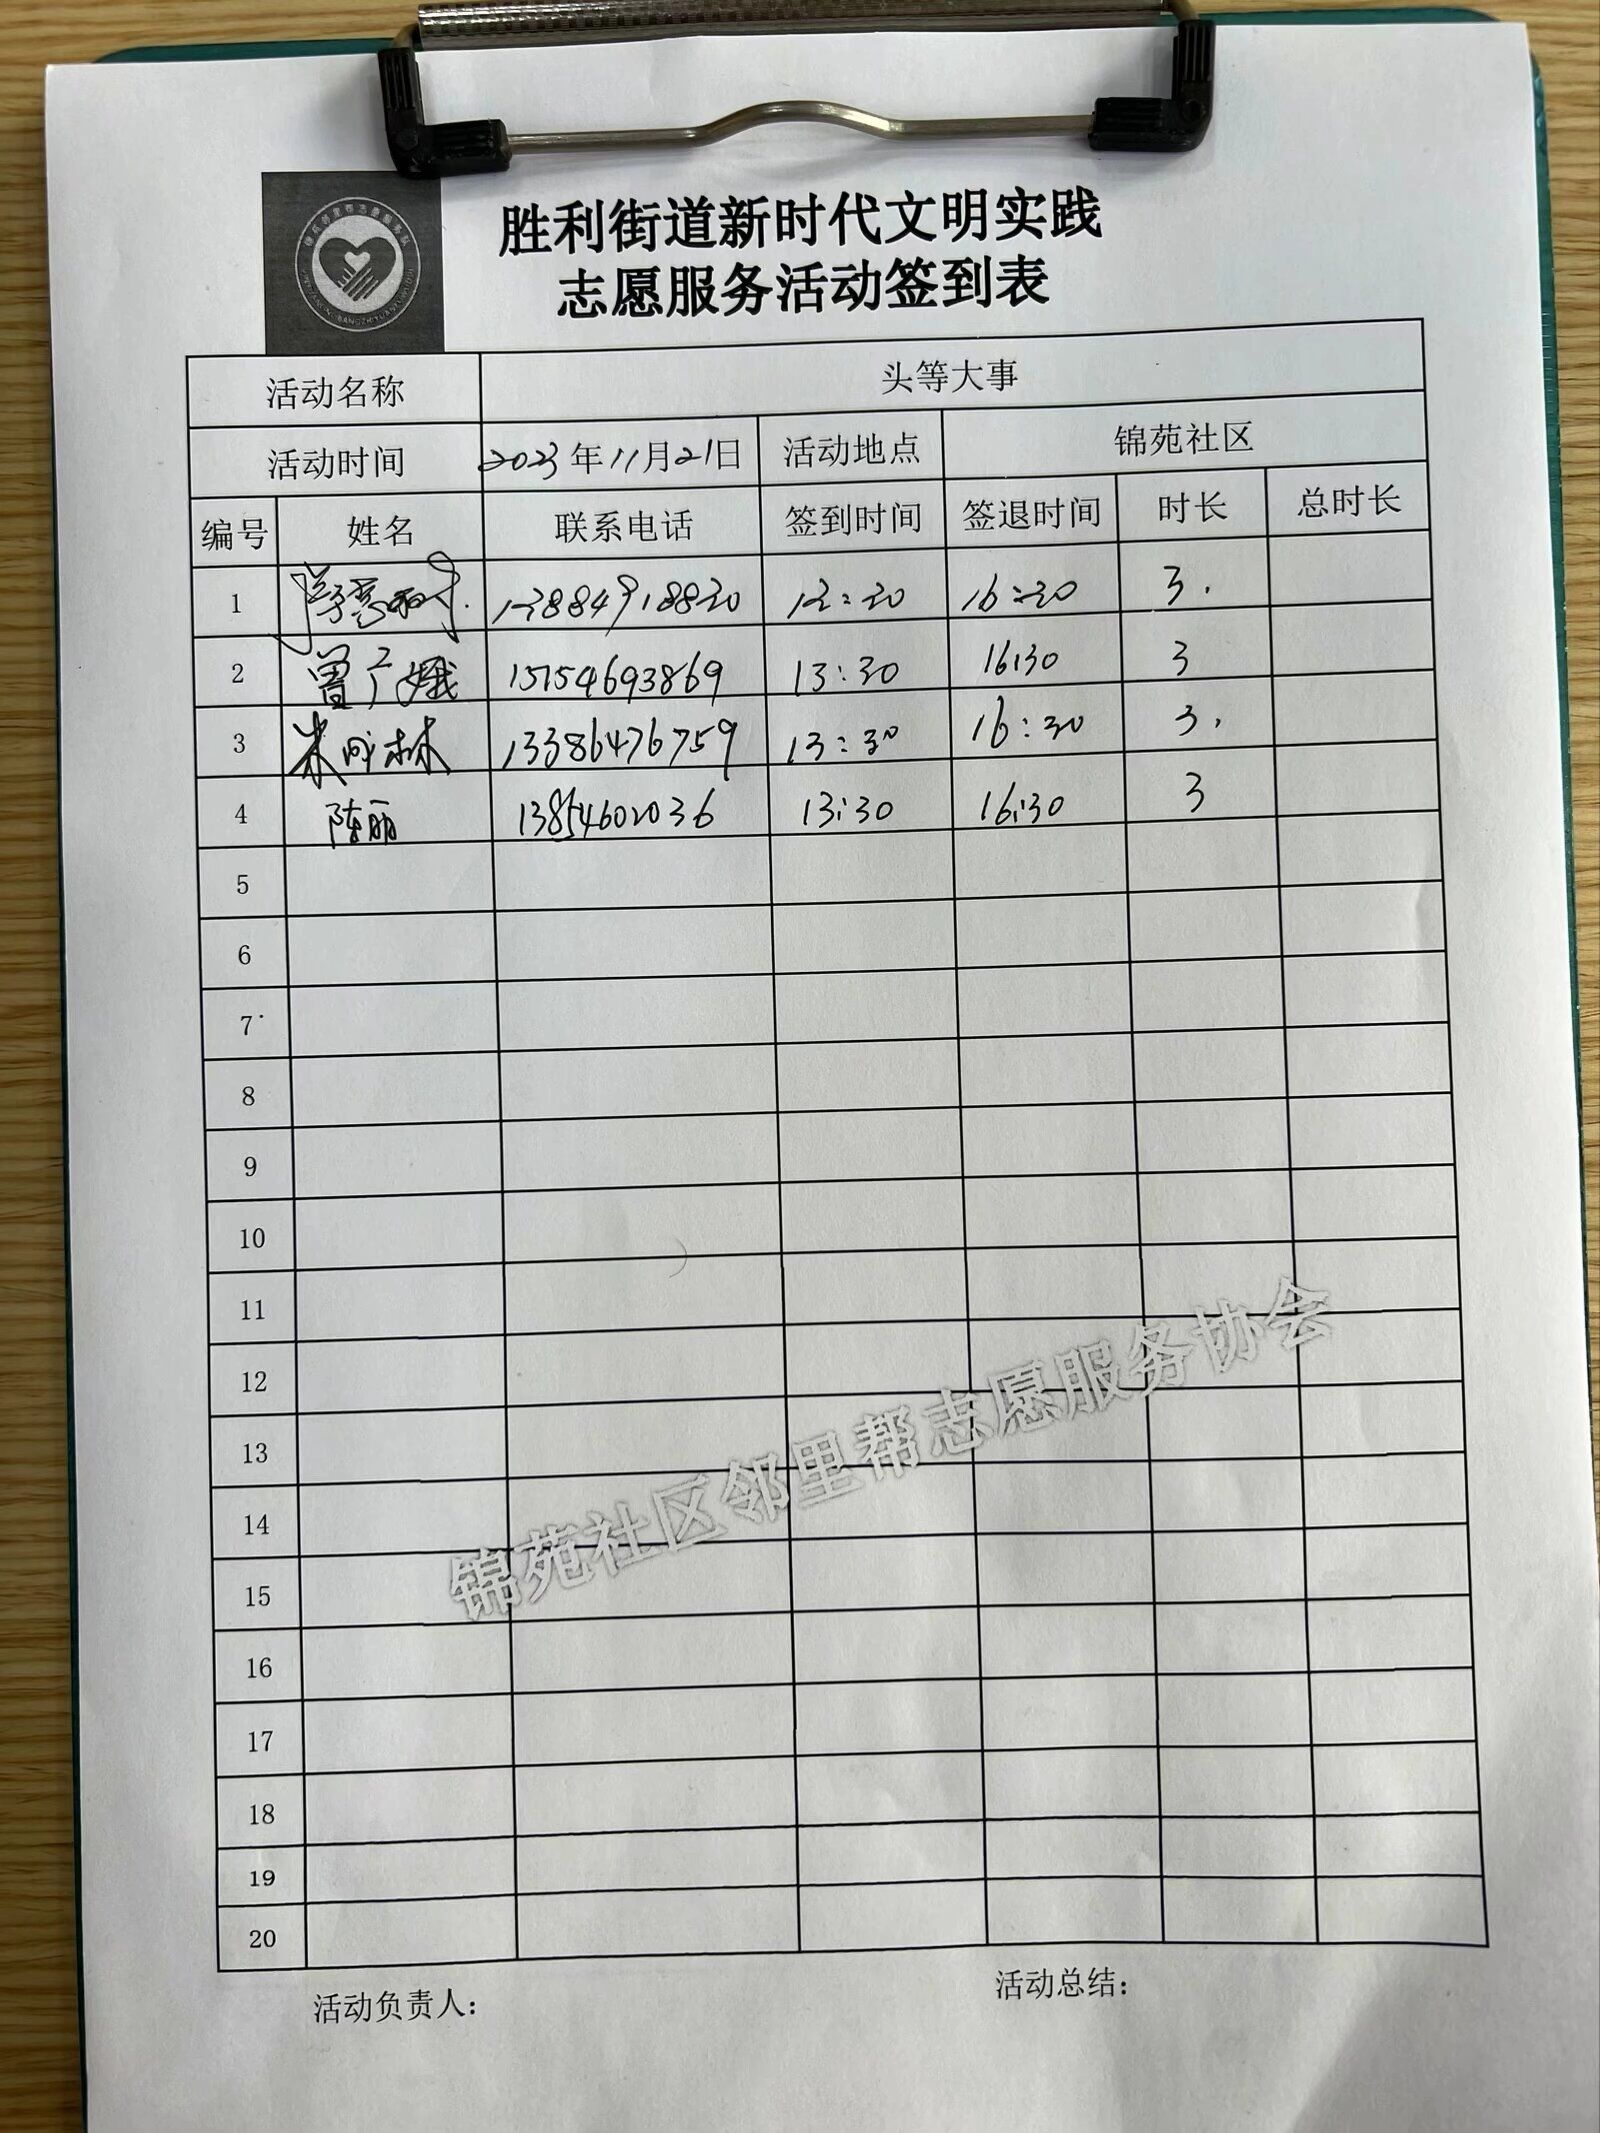 胜利街道新时代文明实践
志愿服务活动签到表
活动名称 头等大事
活动时间 2023年11月21日 活动地点 锦苑社区
编号 姓名 联系电话 签到时间 签退时间 时长 总时长
1 13884918820 13:30 16:30 3.
2 曾广娥 15154693869 13:30 16:30 3
3 朱成林 13386476759 13:30 16:30 3.
4 陈丽 13854602036 13:30 16:30 3
5
6
7
8
9
10
11
12
13
14
15
16
17
18
19
20
锦苑社区邻里帮志愿服务协会
活动负责人： 活动总结：